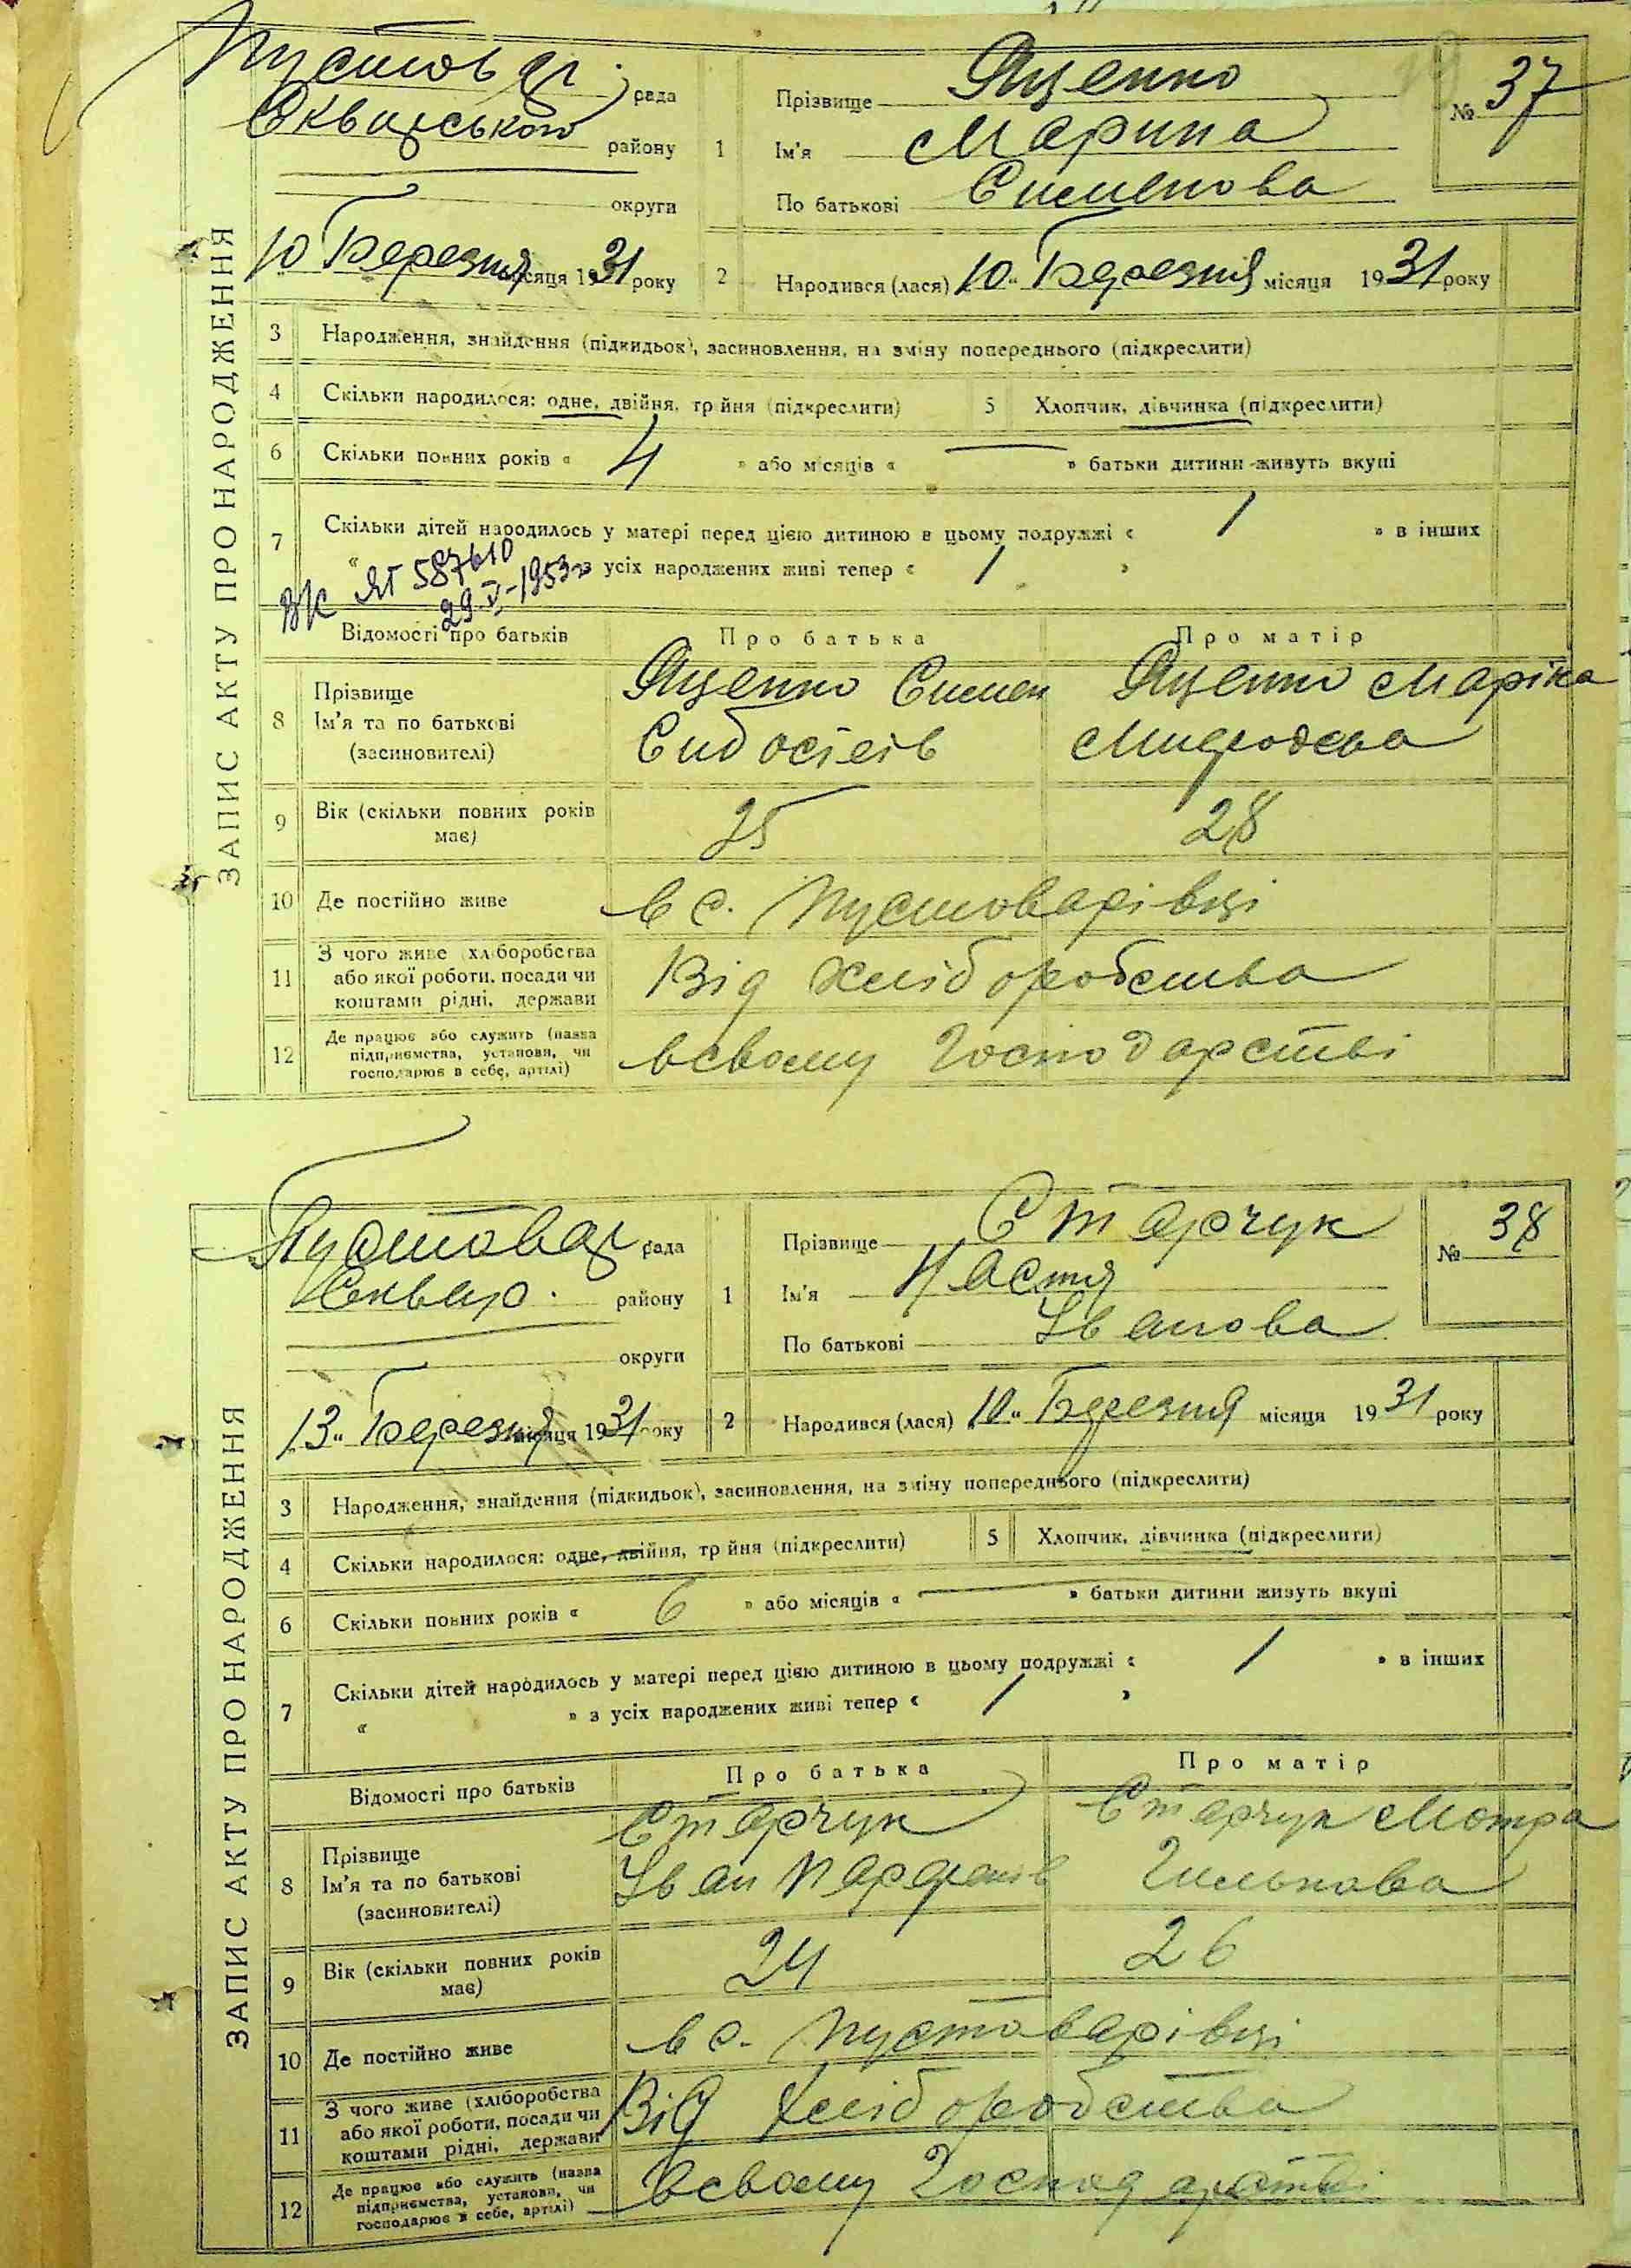 Пустовар. рада
Сквирського району
округи
10 Березня місяця 1931 року
ЗАПИС АКТУ ПРО НАРОДЖЕННЯ
1 Прізвище Яценко
Ім'я Марина
По батькові Сименова
№ 37
2 Народився (лася) 10 „ Березня місяця 1931 року
3 Народження, знайдення (підкидьок), засиновлення, на зміну попереднього (підкреслити)
4 Скільки народилося: одне, двійня, трійня (підкреслити) 5 Хлопчик, дівчинка (підкреслити)
6 Скільки повних років « 4 » або місяців « — » батьки дитини живуть вкупі
7 Скільки дітей народилось у матері перед цією дитиною в цьому подружжі « 1 » в інших
« » з усіх народжених живі тепер « 1 »
ЯГ 587610
29-V-1953
Відомості про батьків Про батька Про матір
8 Прізвище Ім'я та по батькові (засиновителі)
Яценко Симен Яценко Маріка
Сидосіеів
9 Вік (скільки повних років має) 25 28
10 Де постійно живе в с. Пустоварівці
11 З чого живе (хліборобства або якої роботи, посади чи коштами рідні, держави Від хліборобства
12 Де працює або служить (назва підприємства, установи, чи господарює в себе, артілі) в свому господарстві
Пустовар рада
Сквир. району
округи
13 „ Березня місяця 1931 року
ЗАПИС АКТУ ПРО НАРОДЖЕННЯ
1 Прізвище Старчук
Ім'я Настя
По батькові Іванова
№ 38
2 Народився (лася) 10 „ Березня місяця 1931 року
3 Народження, знайдення (підкидьок), засиновлення, на зміну попереднього (підкреслити)
4 Скільки народилося: одне, двійня, трійня (підкреслити) 5 Хлопчик, дівчинка (підкреслити)
6 Скільки повних років « 6 » або місяців « — » батьки дитини живуть вкупі
7 Скільки дітей народилось у матері перед цією дитиною в цьому подружжі « 1 » в інших
« » з усіх народжених живі тепер « 1 »
Відомості про батьків Про батька Про матір
8 Прізвище Ім'я та по батькові (засиновителі)
Старчук Старчук Мотра
Іван Парфенів Гилькова
9 Вік (скільки повних років має) 24 26
10 Де постійно живе в с. Пустоварівці
11 З чого живе (хліборобства або якої роботи, посади чи коштами рідні, держави Від хліборобства
12 Де працює або служить (назва підприємства, установи, чи господарює в себе, артілі) в свому господарстві